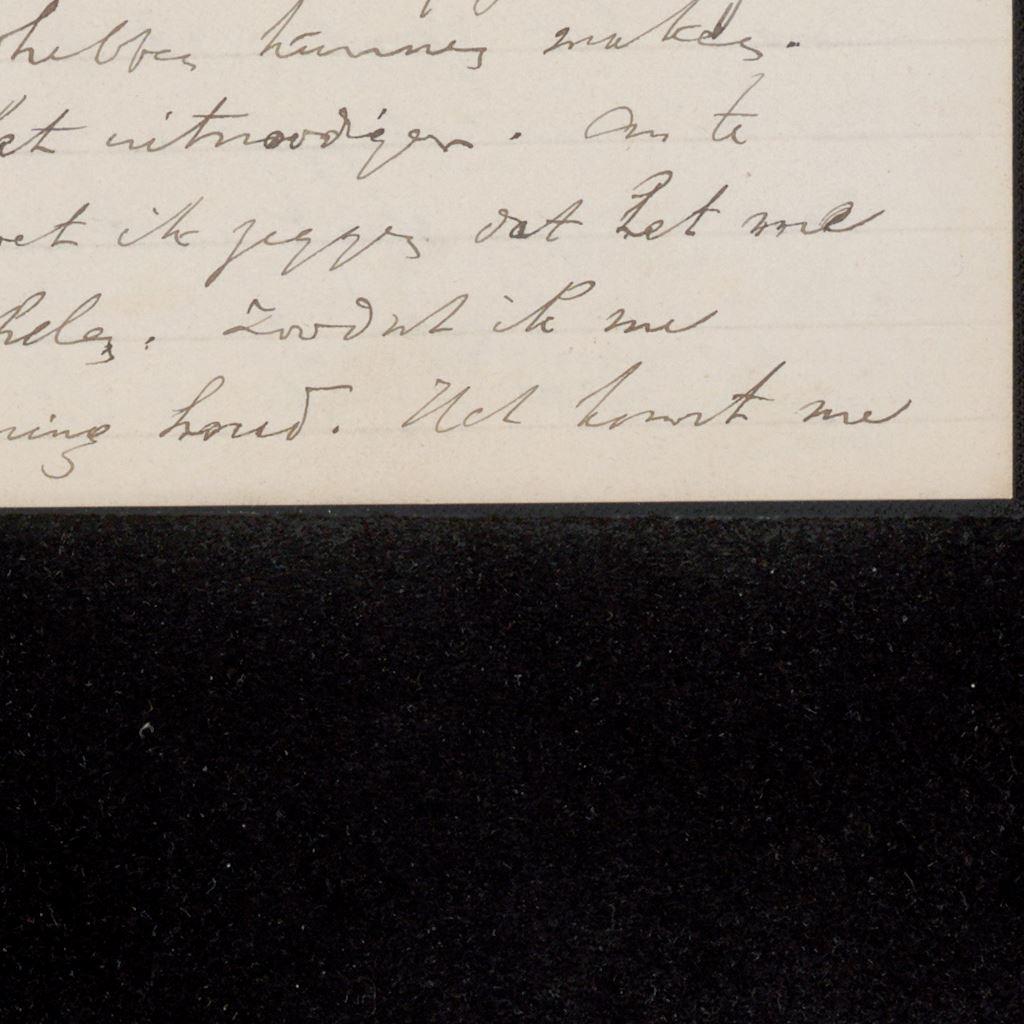 hebben kunnen maken.
uitnoodigen. Om te
ik zeggen dat het me
Zoodat ik me
houd. Het komt me